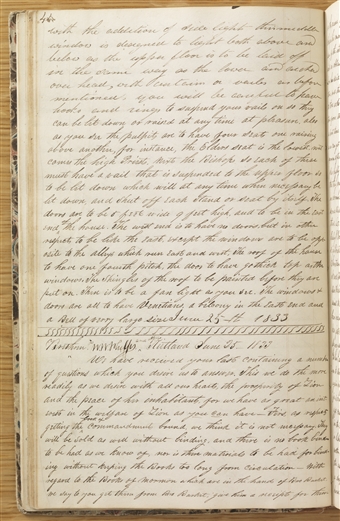 with the addition of side light the middle
window is designed to light both above and
below as the upper floor is to be laid off
in the same way as the lower and arched
over head, with curtains or vailes as before
mentioned. you will be careful to have
hooks and rings to suspend your vails on so they
can be let down or raised at any time at pleasure also
as you see the pulpits are to have four seats one raising
above another, for instance, the Elders seat is the lowest next
comes the high Priest, next the Bishops so each of these
must have a vail that is suspended to the upper floor so
to be let down which will at any time when necessary be
let down, and shut off each stand or seat by itself. The
doors are to be 5 feet wide 9 feet high and to be in the east
end of the house. The west end is to have no doors but in other
respect to be like the east except the windows are to be oppo
site to the alleys which run east and west. The roof of the house
to have one fourth pitch, the doors to have gothick top as the
windows. The Shingles of the roof to be painted before they are
put on. There is to be a fan light as you see. The windows &
doors are all to have Venetians, a belfrey in the East end and
a Bell of very large size June 25th 1833
"Brethren "W.W. Phelps" Kirtland June 25. 1833
"We have received your last containing a number
of questions which you desire us to answer. This we do the more
readily as we desire with all our hearts, the prosperity of Zion
and the peace of her inhabitants for we have as great an int
erest in the welfare of Zion as you can have— First as respects
getting the Book of commandments bound, we think it is not necessary. They
will be sold as well without binding, and there is no book binder
to be had as we know of, nor is there materials to be had for bind
ing without keeping the Books too long from circulation— With
regard to the Books of Mormon which are in the hands of Bro Burket
we say to you get them from Bro Burket, give him a receipt for them